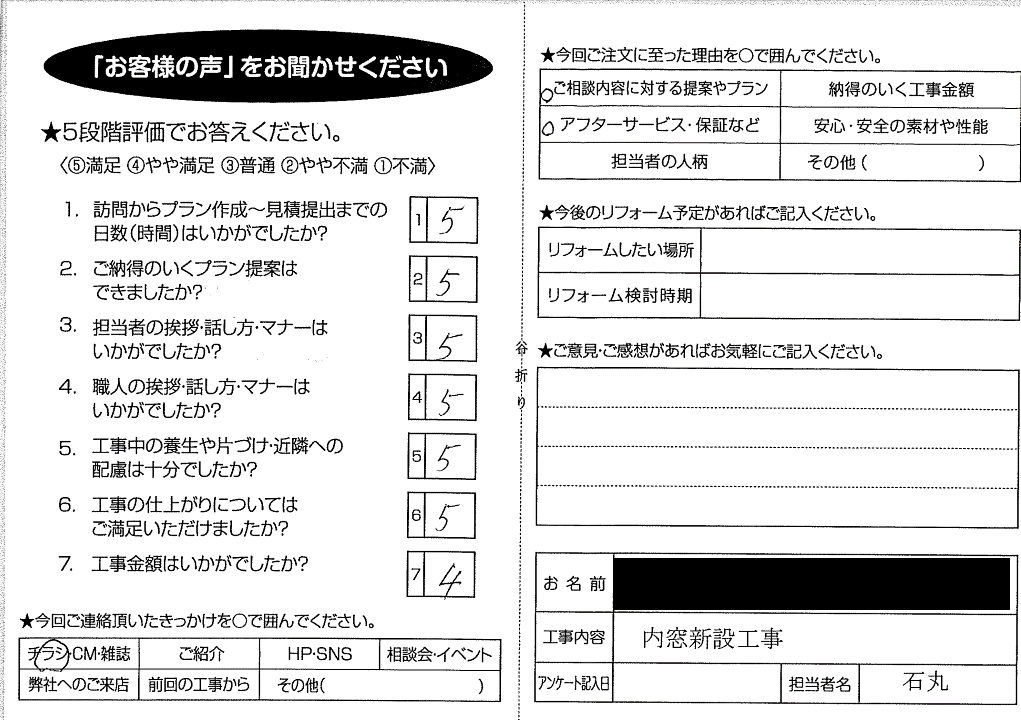 「お客様の声」をお聞かせください
★5段階評価でお答えください。
〈⑤満足 ④やや満足 ③普通 ②やや不満 ①不満〉
1. 訪問からプラン作成〜見積提出までの
日数(時間)はいかがでしたか?
1 5
2. ご納得のいくプラン提案は
できましたか?
2 5
3. 担当者の挨拶・話し方・マナーは
いかがでしたか?
3 5
4. 職人の挨拶・話し方・マナーは
いかがでしたか?
4 5
5. 工事中の養生や片づけ・近隣への
配慮は十分でしたか?
5 5
6. 工事の仕上がりについては
ご満足いただけましたか?
6 5
7. 工事金額はいかがでしたか?
7 4
★今回ご連絡頂いたきっかけを〇で囲んでください。
チラシ・CM・雑誌 ご紹介 HP・SNS 相談会・イベント
弊社へのご来店 前回の工事から その他( )
谷折り
★今回ご注文に至った理由を〇で囲んでください。
ご相談内容に対する提案やプラン 納得のいく工事金額
アフターサービス・保証など 安心・安全の素材や性能
担当者の人柄 その他( )
★今後のリフォーム予定があればご記入ください。
リフォームしたい場所
リフォーム検討時期
★ご意見・ご感想があればお気軽にご記入ください。
お名前
工事内容 内窓新設工事
アンケート記入日 担当者名 石丸